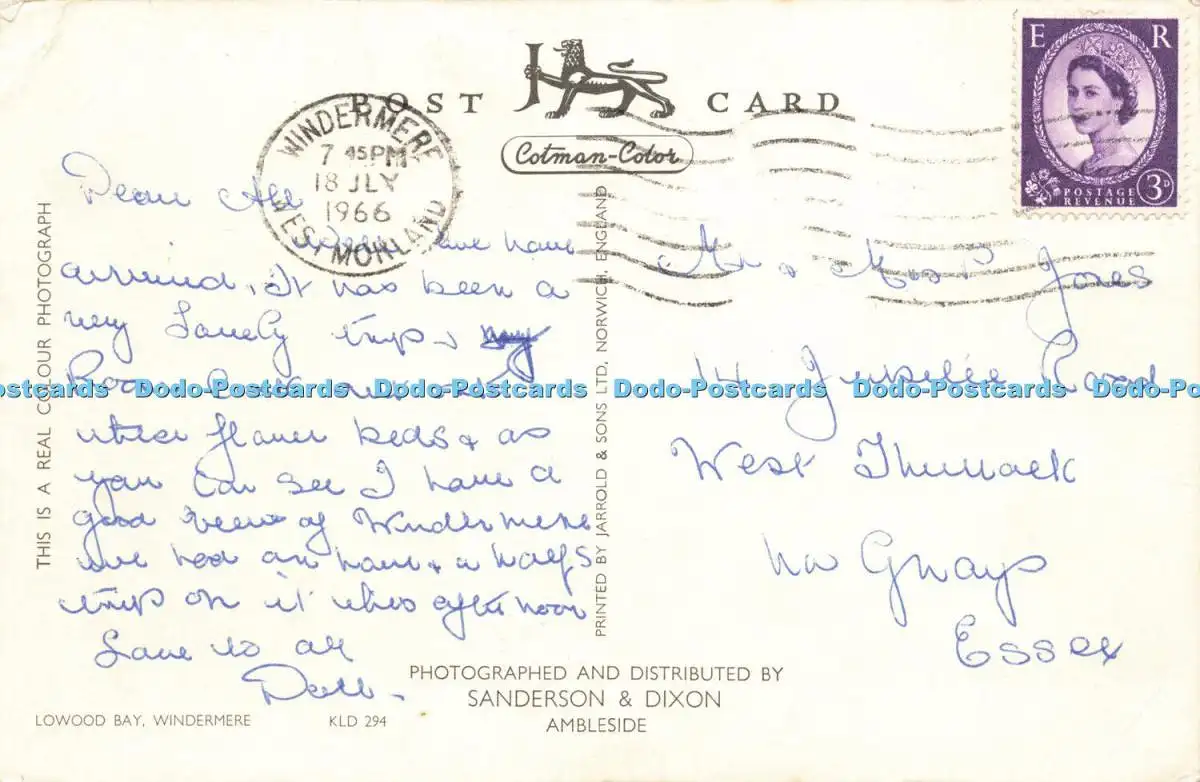 POST CARD
Cotman-Color
E R
POSTAGE
REVENUE
3D
WINDERMERE
7 45PM
18 JLY
1966
WESTMORLAND
THIS IS A REAL COLOUR PHOTOGRAPH
Dear All
Well we have
arrived, it has been a
very Lovely trip &
over
these flower beds & as
you can see I have a
good view of Windermere
we had an hour & a half's
trip on it this afternoon
Love to all
Doll.
PRINTED BY JARROLD & SONS LTD, NORWICH, ENGLAND
Mr & Mrs P Jones
14 Jubilee Road
West Thurrock
Nr Grays
Essex
PHOTOGRAPHED AND DISTRIBUTED BY
SANDERSON & DIXON
AMBLESIDE
LOWOOD BAY, WINDERMERE KLD 294
Dodo-Postcards Dodo-Postcards Dodo-Postcards Dodo-Postcards Dodo-Postcards